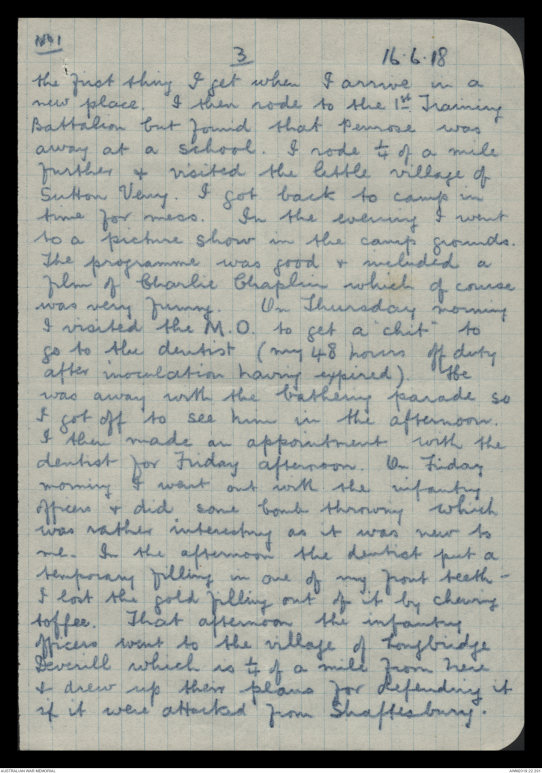 No 1
3 16.6.18
the first thing I get when I arrive in a
new place. I then rode to the 1st Training
Battalion but found that Penrose was
away at a school. I rode ¼ of a mile
further & visited the little village of
Sutton Veny. I got back to camp in
time for mess. In the evening I went
to a picture show in the camp grounds.
The programme was good & included a
film of Charlie Chaplin which of course
was very funny. On Thursday morning
I visited the M.O. to get a "chit" to
go to the dentist (my 48 hours off duty
after inoculation having expired). He
was away with the bathing parade so
I got off to see him in the afternoon.
I then made an appointment with the
dentist for Friday afternoon. On Friday
morning I went out with the infantry
officers & did some bomb throwing which
was rather interesting as it was new to
me. In the afternoon the dentist put a
temporary filling in one of my front teeth -
I lost the gold filling out of it by chewing
toffee. That afternoon the infantry
officers went to the village of Longbridge
Deverill which is ¼ of a mile from here
& drew up their plans for defending it
if it were attacked from Shaftesbury.
AUSTRALIAN WAR MEMORIAL